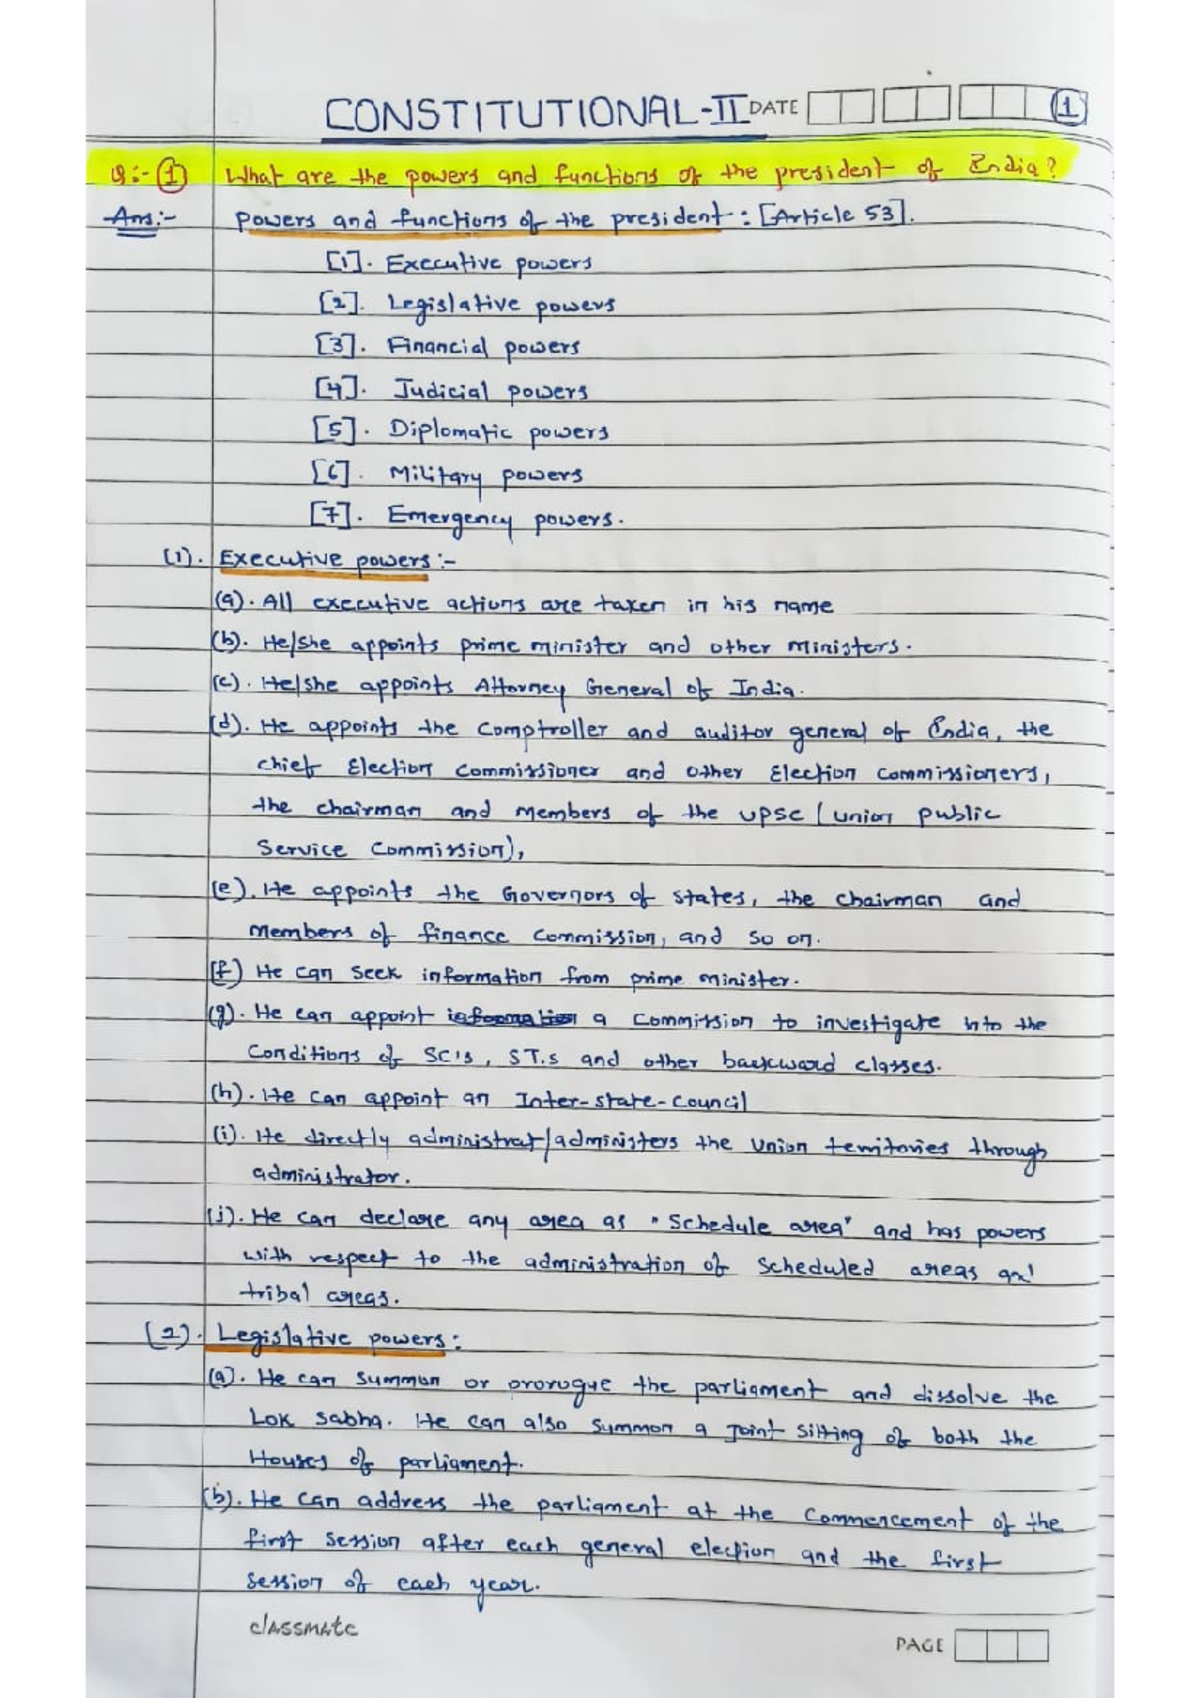 CONSTITUTIONAL-II DATE 1
Q:- (1) What are the powers and functions of the president of India?
Ans:- Powers and functions of the president : [Article 53].
[1]. Executive powers
[2]. Legislative powers
[3]. Financial powers
[4]. Judicial powers
[5]. Diplomatic powers
[6]. Military powers
[7]. Emergency powers.
(1). Executive powers :-
(a). All executive actions are taken in his name
(b). He/she appoints prime minister and other ministers.
(c). He/she appoints Attorney General of India.
(d). He appoints the Comptroller and auditor general of India, the
chief Election Commissioner and other Election Commissioners,
the chairman and members of the UPSC (union public
Service Commission),
(e). He appoints the Governors of states, the chairman and
members of finance Commission, and so on.
(f) He can seek information from prime minister.
(g). He can appoint information a Commission to investigate into the
Conditions of SC's, ST.s and other backward classes.
(h). He can appoint an Inter-state-council
(i). He directly administrat/administers the Union territories through
administrator.
(j). He can declare any area as "Schedule area" and has powers
with respect to the administration of Scheduled areas an'
tribal areas.
(2). Legislative powers :
(a). He can summon or prorogue the parliament and dissolve the
Lok Sabha. He can also summon a joint sitting of both the
Houses of parliament.
(b). He can address the parliament at the Commencement of the
first session after each general election and the first
session of each year.
classmate
PAGE